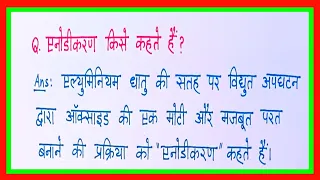 Q. एनोडीकरण किसे कहते हैं?
Ans: एल्युमिनियम धातु की सतह पर विद्युत अपघटन
द्वारा ऑक्साइड की एक मोटी और मजबूत परत
बनाने की प्रक्रिया को "एनोडीकरण" कहते हैं।